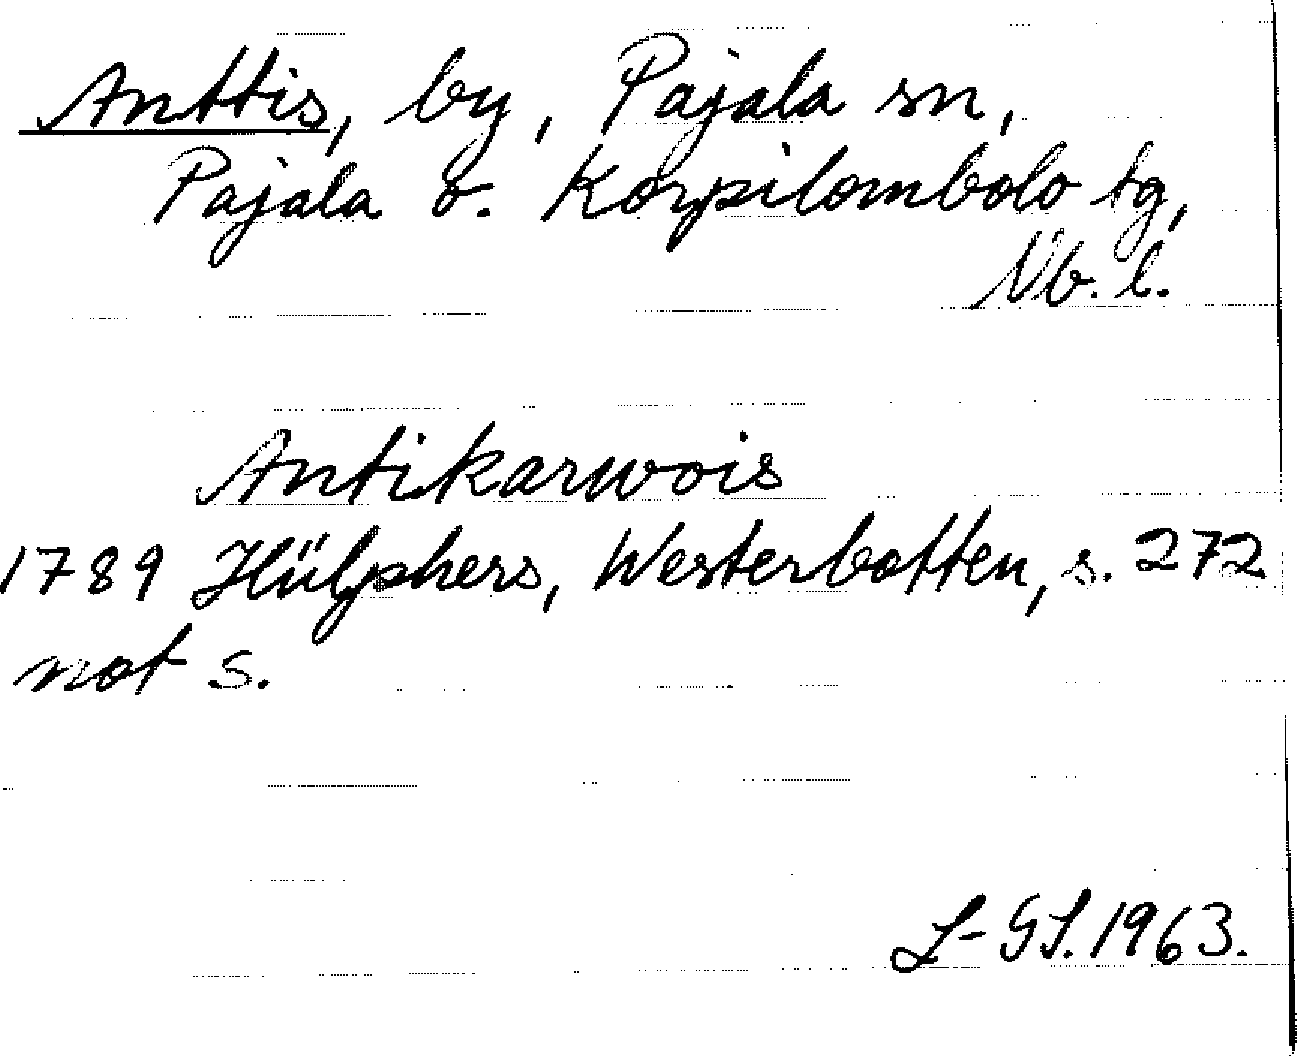 Anttis, by, Pajala sn,
Pajala o. Korpilombolo tg,
Nb. l.
Antikarwois
1789 Hülphers, Westerbotten, s. 272
not s.
L-GS. 1963.